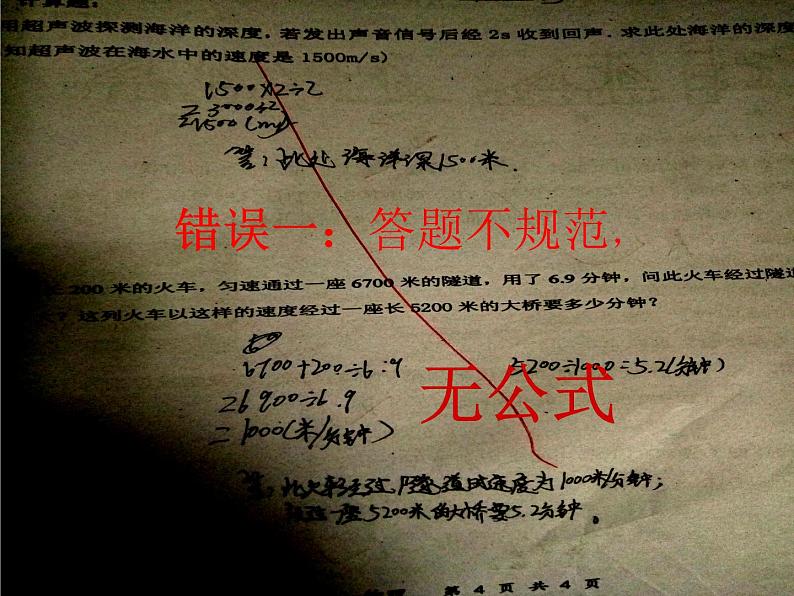 计算题:
用超声波探测海洋的深度,若发出声音信号后经 2s 收到回声.求此处海洋的深度
知超声波在海水中的速度是 1500m/s)
1500×2÷2
=3000÷2
=1500(m)
答:此处海洋深1500米.
错误一:答题不规范,
长 200 米的火车,匀速通过一座 6700 米的隧道,用了 6.9 分钟,问此火车经过隧道
这列火车以这样的速度经过一座长 5200 米的大桥要多少分钟?
6700+200÷6.9 5200÷1000=5.2(分钟)
无公式
=6900÷6.9
=1000(米/分钟)
答:此火车经过隧道时速度为1000米/分钟;
一座5200米的大桥要5.2分钟。
第 4 页 共 4 页